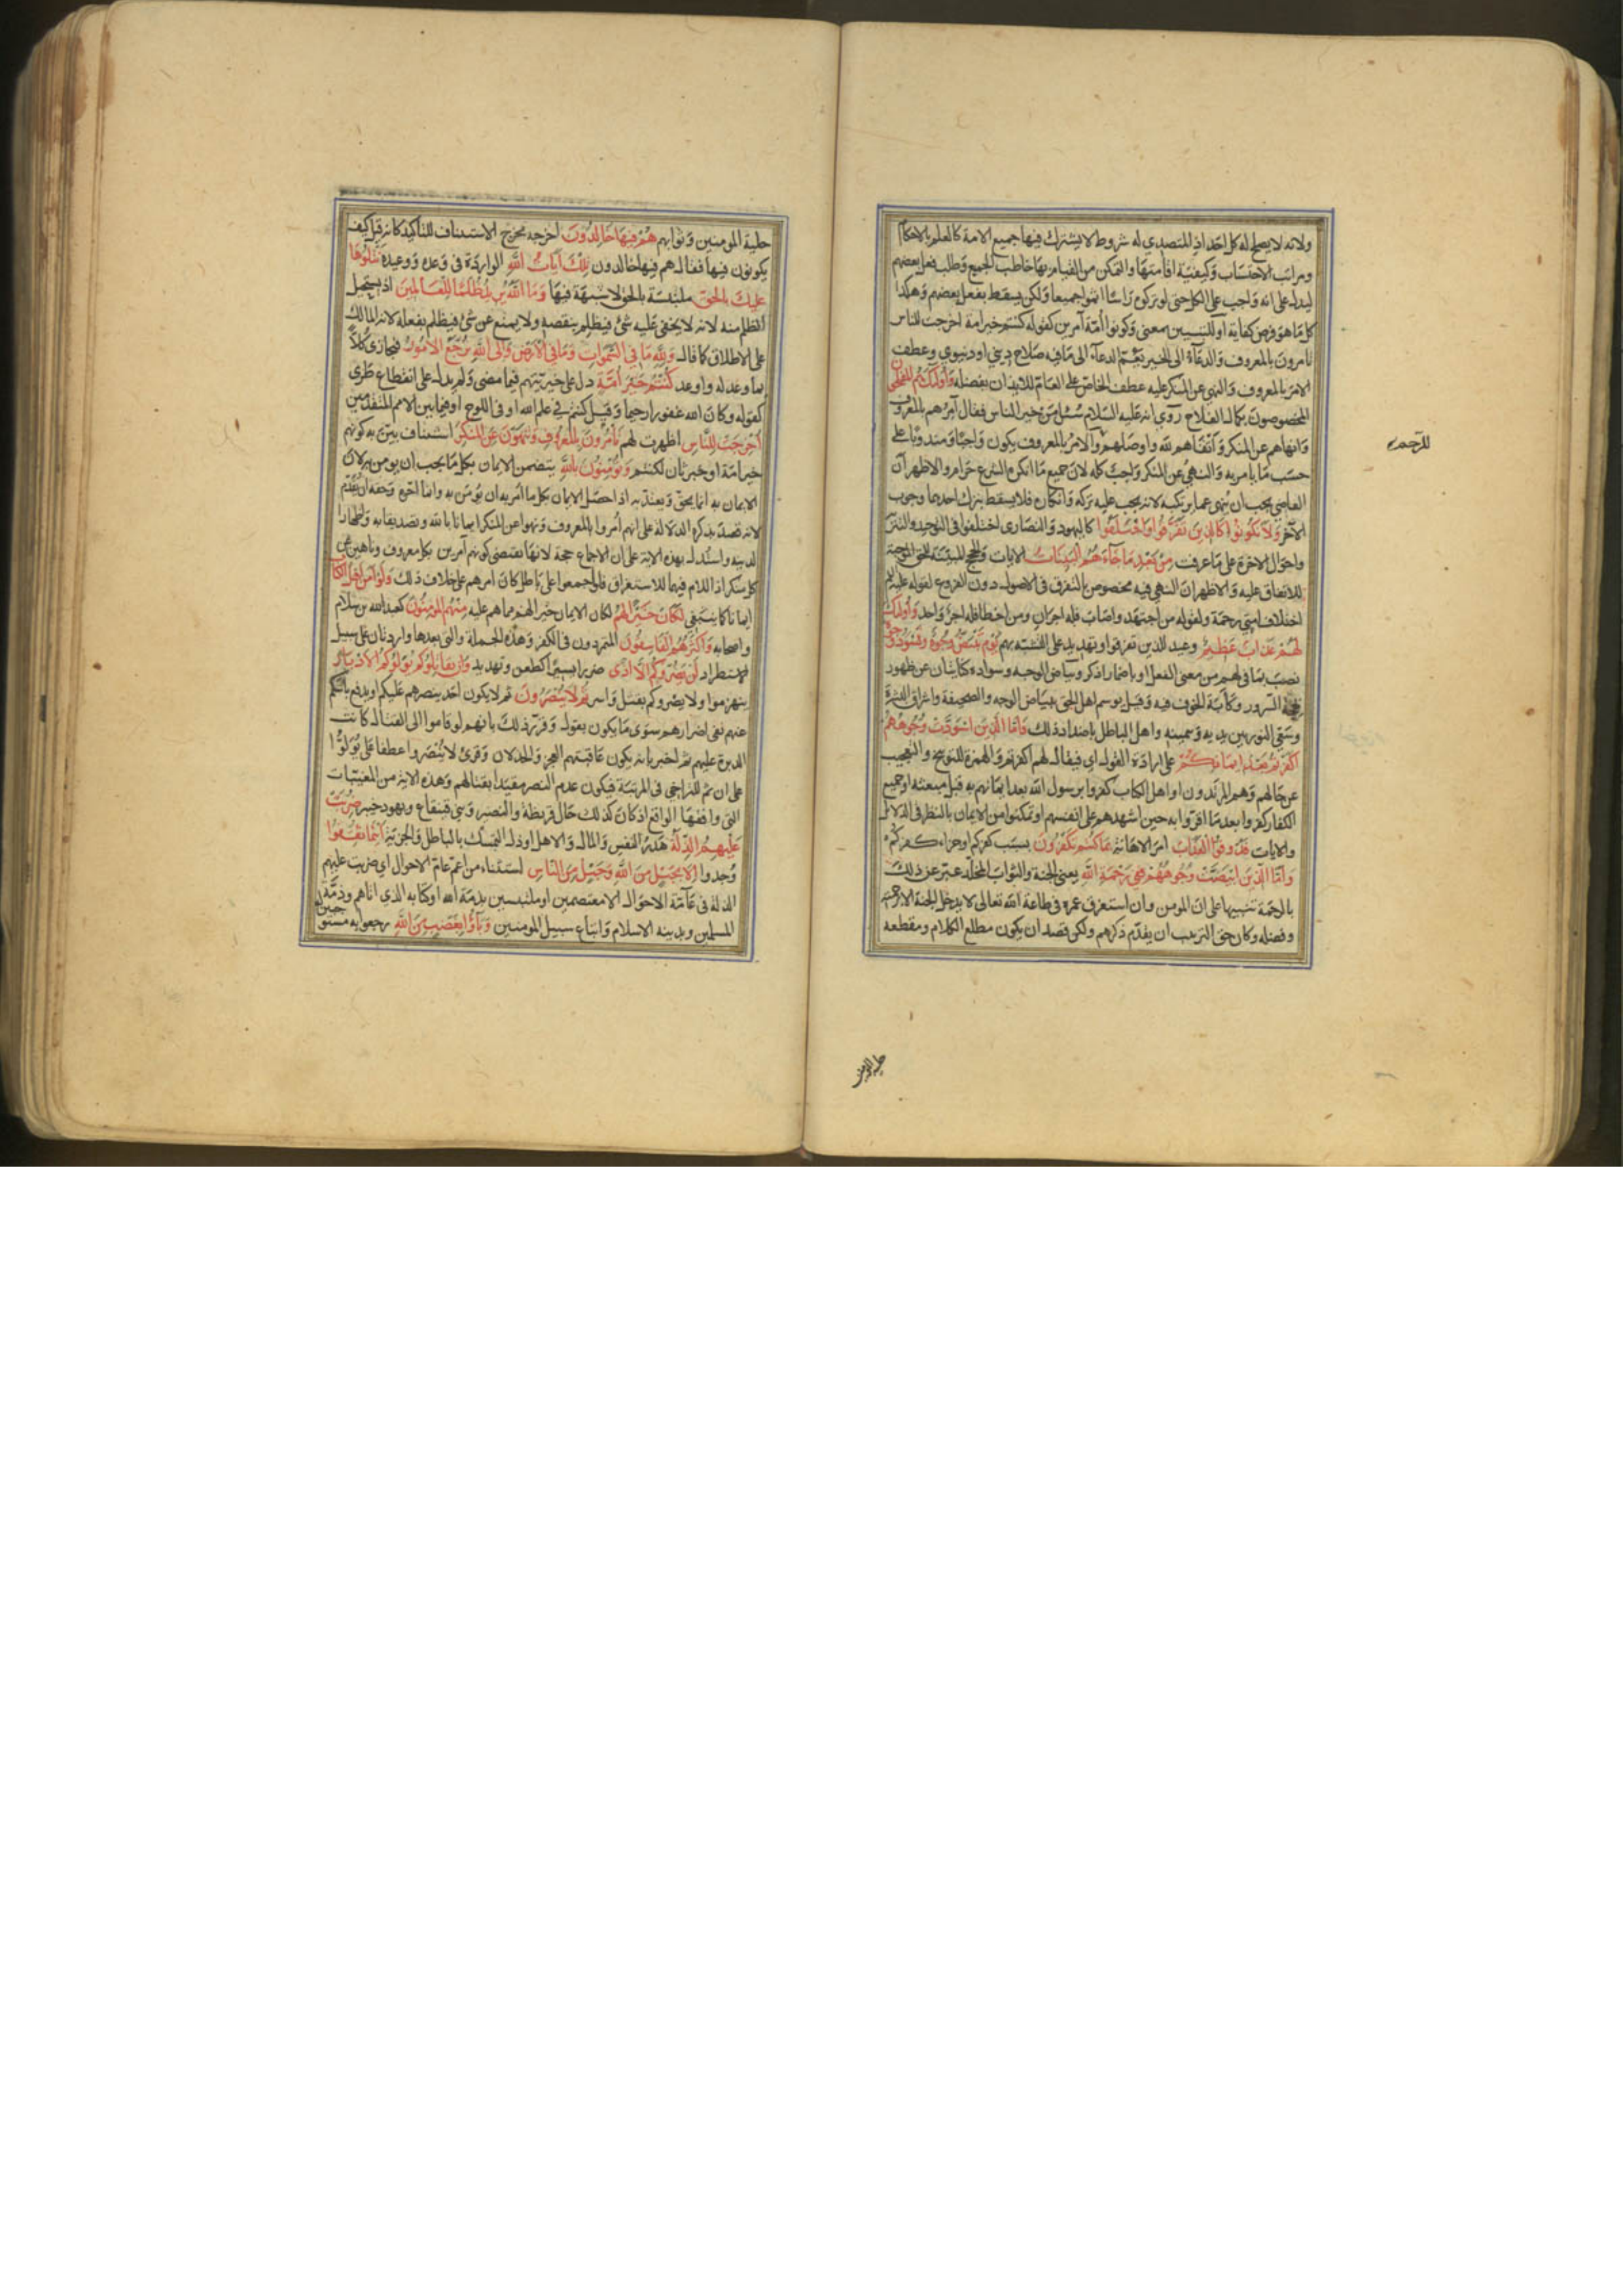 ولانه لا يصلح له كل احد اذ للمتصدى له شروط لا يشترك فيها جميع الامة كالعلم بالاحكام
ومراتب الاحتساب وكيفية اقامتها والتمكن من القيام بها خاطب الجميع وطلب فعل بعضهم
ليدل على انه واجب على الكل حتى لو تركوه راسا اثموا جميعا ولكن يسقط بفعل بعضهم وهكذا
كل ما هو فرض كفاية او للتبيين بمعنى وكونوا أمة آمرين كقوله كنتم خير امة اخرجت للناس
تامرون بالمعروف والدعآء الى الخير يعم الدعآء الى ما فيه صلاح دينى او دنيوي وعطف
الامر بالمعروف والنهى عن المنكر عليه عطف الخاص على العام للايذان بفضله وأولئك هم المفلحون
المخصوصون بكمال الفلاح روي انه عليه السلام سئل من خير الناس فقال آمرهم بالمعروف
وانهاهم عن المنكر واتقاهم لله واوصلهم والامر بالمعروف يكون واجبا ومندوبا على
حسب ما يامر به والنهي عن المنكر واجب كله لان جميع ما انكره الشرع حرام والاظهر ان
العاصي يجب ان ينهى عما يرتكبه لانه يجب عليه تركه وانكاره فلا يسقط بترك احدهما وجوب
الآخر ولا تكونوا كالذين تفرقوا واختلفوا كاليهود والنصارى اختلفوا في التوحيد والتنزيه
واحوال الاخرة على ما عرفت من بعد ما جآءهم البينات الايات والحجج المبينة للحق الموجبة
للاتفاق عليه والاظهر ان النهي فيه مخصوص بالتفرق في الاصول دون الفروع لقوله عليه السلام
اختلاف امتي رحمة ولقوله من اجتهد واصاب فله اجران ومن اخطا فله اجر واحد وأولئك
لهم عذاب عظيم وعيد للذين تفرقوا وتهديد على التشبه بهم يوم تبيض وجوه وتسود وجوه
نصب بما في لهم من معنى الفعل او باضمار اذكر وبياض الوجه وسواده كنايتان عن ظهور
بهجة السرور وكآبة الخوف فيه وقيل يوسم اهل الحق ببياض الوجه والصحيفة واشراق البشرة
وسعي النور بين يديه وبيمينه واهل الباطل باضداد ذلك فاما الذين اسودت وجوههم
اكفرتم بعد ايمانكم على ارادة القول اي فيقال لهم اكفرتم والهمزة للتوبيخ والتعجيب
عن حالهم وهم المرتدون او اهل الكتاب كفروا برسول الله بعد ايمانهم به قبل مبعثه او جميع
الكفار كفروا بعد ما اقروا به حين اشهدهم على انفسهم او تمكنوا من الايمان بالنظر في الدلائل
والايات فذوقوا العذاب امر الاهانة بما كنتم تكفرون بسبب كفركم او جزاء كفركم
واما الذين ابيضت وجوههم ففي رحمة الله يعني الجنة والثواب المخلد عبر عن ذلك
بالرحمة تنبيها على ان المومن وان استغرق عمره في طاعة الله تعالى لا يدخل الجنة الا برحمته
وفضله وكان حق الترتيب ان يقدم ذكرهم ولكن قصد ان يكون مطلع الكلام ومقطعه
حلية المومنين
حلية المومنين وثوابهم هم فيها خالدون اخرجه مخرج الاستيناف للتاكيد كانه قيل كيف
يكونون فيها فقال هم فيها خالدون تلك آيات الله الواردة فى وعده ووعيده نتلوها
عليك بالحق ملتبسة بالحق لا شبهة فيها وما الله يريد ظلما للعالمين اذ يستحيل
الظلم منه لانه لا يخفى عليه شئ فيظلم بنقصه ولا يمنع عن شئ فيظلم بفعله لانه المالك
على الاطلاق كما قال ولله ما في السموات وما في الارض والى الله ترجع الامور فيجازى كلا
بما وعد له واوعد كنتم خير امة دل على خيريتهم فيما مضى ولم يدل على انقطاع طرى
كقوله وكان الله غفورا رحيما وقيل كنتم في علم الله او فى اللوح او فيما بين الامم المتقدمين
أخرجت للناس اظهرت لهم تأمرون بالمعروف وتنهون عن المنكر استيناف بين به كونهم
خير امة او خبر ثان لكنتم وتؤمنون بالله يتضمن الايمان بكل ما يجب ان يومن به لان
الايمان به انما يحق ويعتد به اذا حصل الايمان بكل ما امر به ان يؤمن به وانما اخره وحقه ان يقدم
لانه قصد بذكره الدلالة على انهم امروا بالمعروف ونهوا عن المنكر ايمانا بالله وتصديقا به واظهارا
لدينه واستدل بهذه الاية على ان الاجماع حجة لانها تقتضى كونهم آمرين بكل معروف وناهين عن
كل منكر اذ اللام فيهما للاستغراق فلو اجمعوا على باطل كان امرهم على خلاف ذلك ولو آمن اهل الكتاب
ايمانا كما ينبغي لكان خيرا لهم لكان الايمان خيرا لهم مما هم عليه منهم المؤمنون كعبد الله بن سلام
واصحابه واكثرهم الفاسقون المتمردون في الكفر وهذه الجملة والتى بعدها واردتان على سبيل
الاستطراد لن يضروكم الا اذى ضررا يسيرا كطعن وتهديد وان يقاتلوكم يولوكم الادبار
ينهزموا ولا يضروكم بقتل واسر ثم لا ينصرون ثم لا يكون احد ينصرهم عليكم او يدفع باسكم
عنهم نفى اضرارهم سوى ما يكون بقول وقرر ذلك بانهم لو قاموا الى القتال كانت
الدبرة عليهم ثم اخبر بانه يكون عاقبتهم العجز والخذلان وقرئ لا ينصروا عطفا على يولوا
على ان ثم للتراخي فى المرتبة فيكون عدم النصر مقيدا بقتالهم وهذه الاية من المغيبات
التى وافقها الواقع اذ كان كذلك حال قريظة والنضير وبني قينقاع ويهود خيبر ضربت
عليهم الذلة هدر النفس والمال والاهل او ذل التمسك بالباطل والجزية اينما ثقفوا
وجدوا الا بحبل من الله وحبل من الناس استثناء من اعم عام الاحوال اي ضربت عليهم
الذلة فى عامة الاحوال الا معتصمين او ملتبسين بذمة الله او كتابه الذي اتاهم وذمة
المسلمين وبدينه الاسلام واتباع سبيل المومنين وباؤا بغضب من الله رجعوا به مستوجبين له